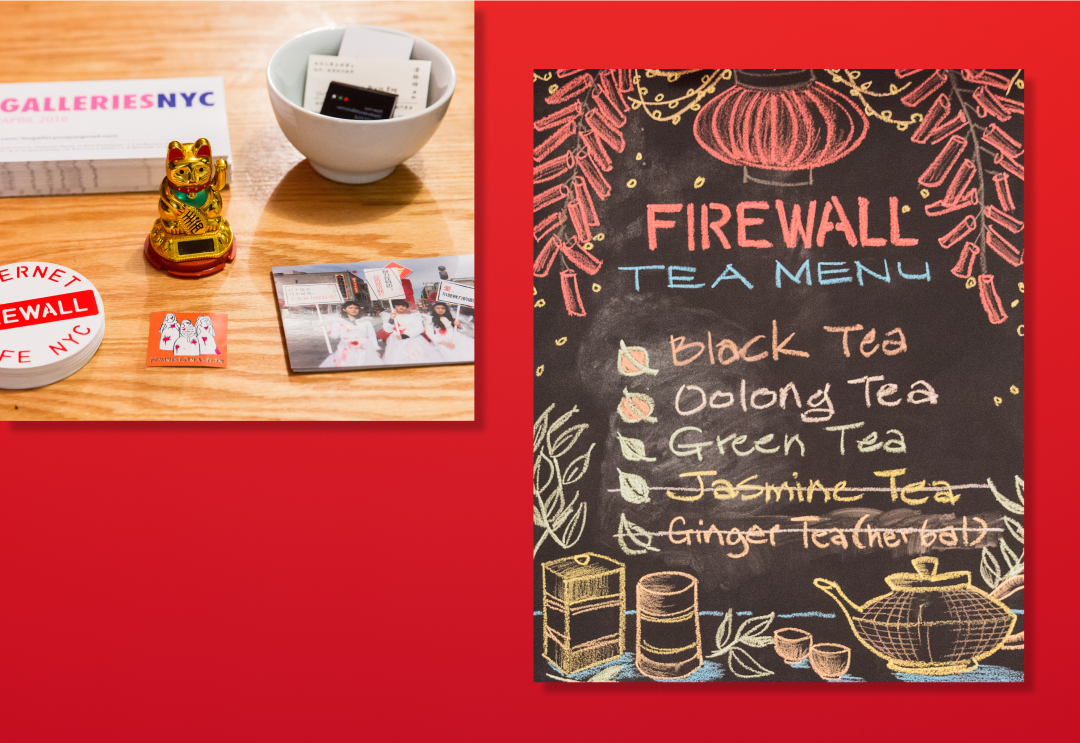 GALLERIESNYC
APRIL 2016
ERNET
EWALL
FE NYC
FIREWALL
TEA MENU
Black Tea
Oolong Tea
Green Tea
Jasmine Tea
Ginger Tea (herbal)